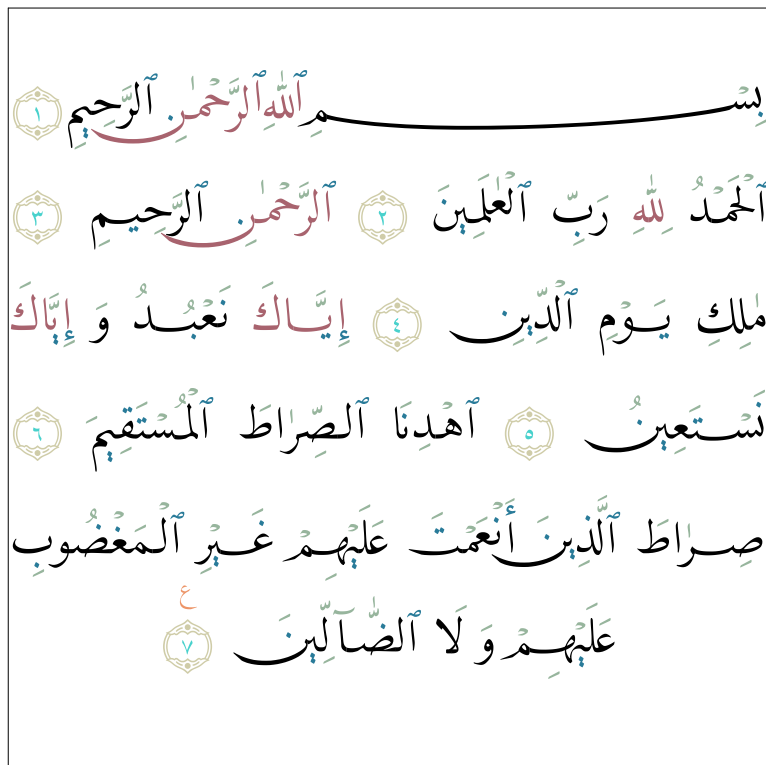 بِسْمِ ٱللّٰهِ ٱلرَّحْمٰنِ ٱلرَّحِيمِ ١
ٱلْحَمْدُ لِلّٰهِ رَبِّ ٱلْعٰلَمِينَ ٢ ٱلرَّحْمٰنِ ٱلرَّحِيمِ ٣
مٰلِكِ يَوْمِ ٱلْدِّينِ ٤ إِيَّاكَ نَعْبُدُ وَ إِيَّاكَ
نَسْتَعِينُ ٥ ٱهْدِنَا ٱلصِّرٰاطَ ٱلْمُسْتَقِيمَ ٦
صِرٰاطَ ٱلَّذِينَ أَنْعَمْتَ عَلَيْهِمْ غَيْرِ ٱلْمَغْضُوبِ
عَلَيْهِمْ وَ لَا ٱلضّٰٓالِّينَ ٧ ع